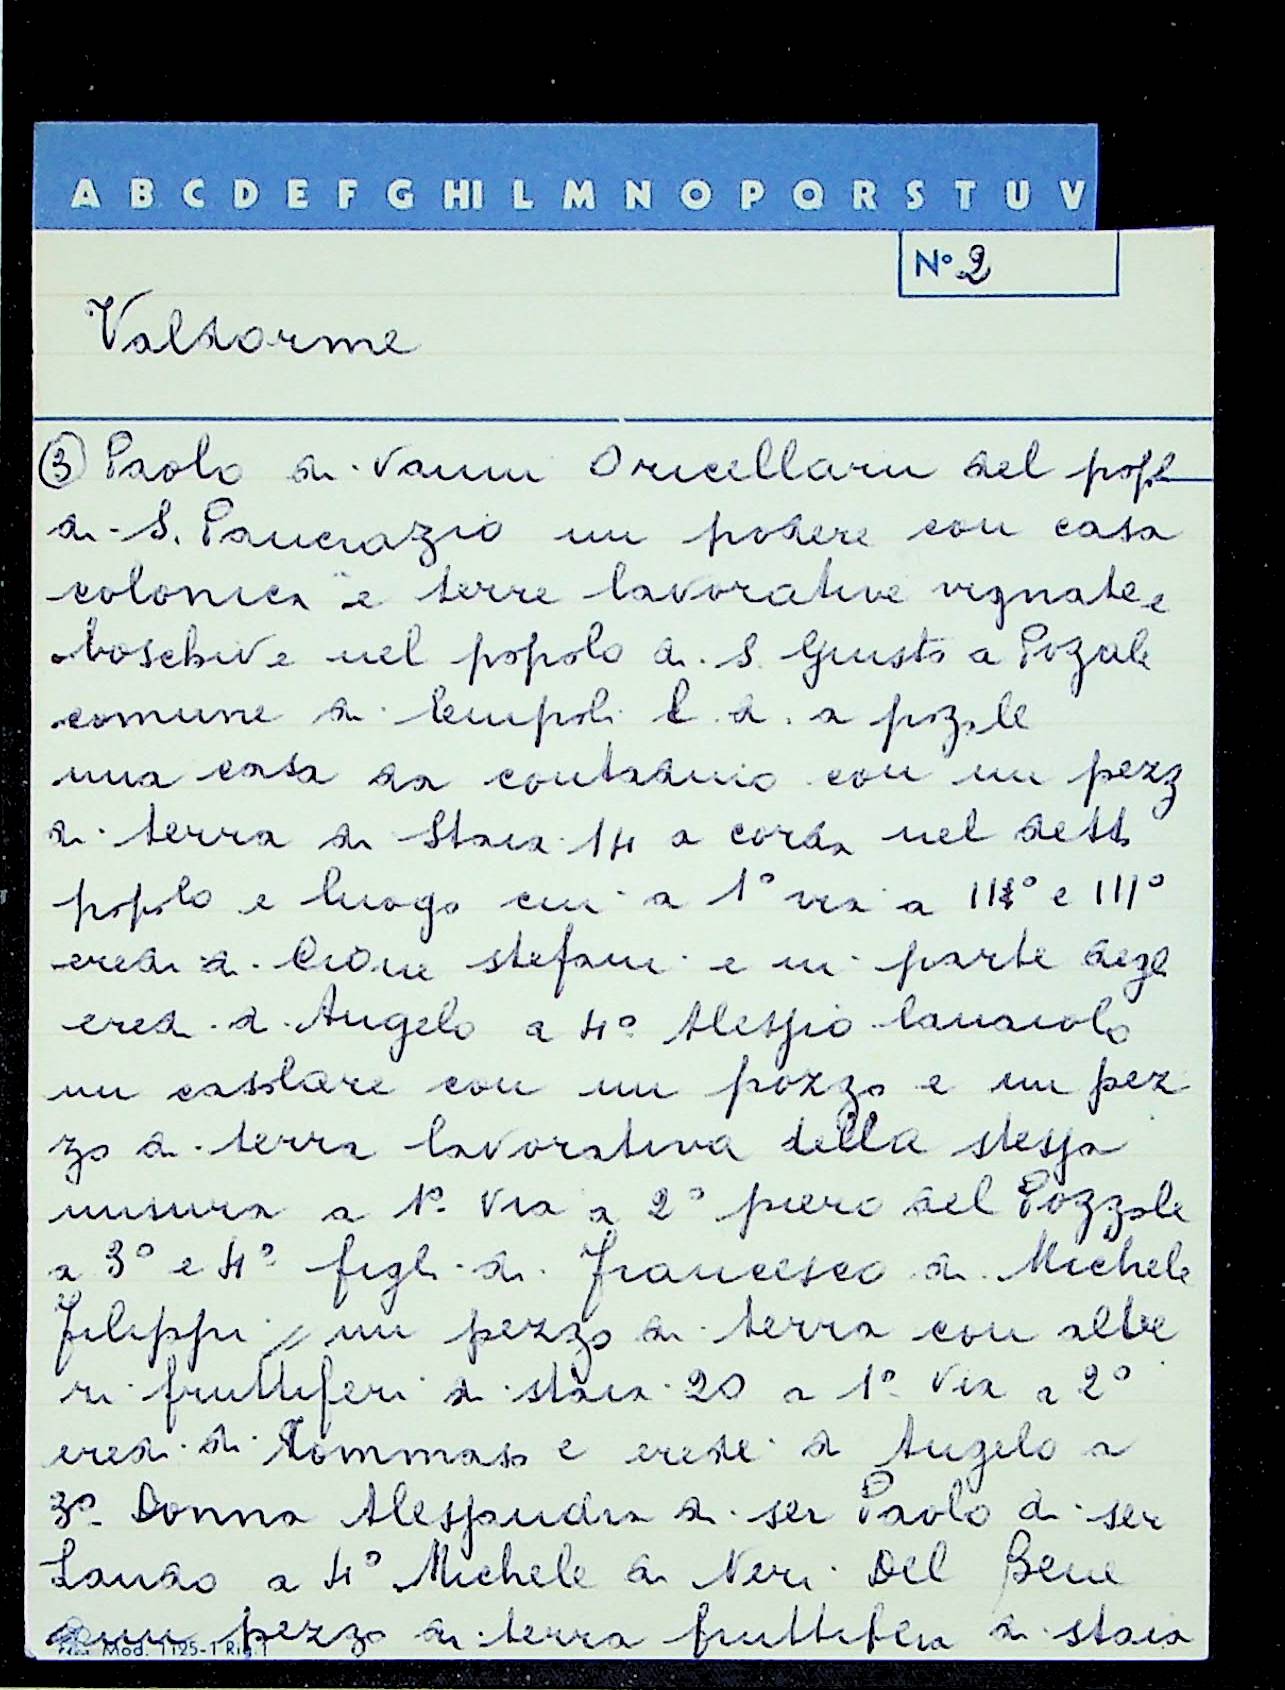 A B C D E F G HI L M N O P Q R S T U V
N° 2
Valdorme
③ Paolo di Vanni Oricellari del popl
di S. Pancrazio un podere con casa
colonica e terre lavorative vignate e
boschive nel popolo di S. Giusto a Pozale
comune di Empoli l. d. a pozale
una casa da contadino con un pezz
di terra di Staia 14 a corda nel detto
popolo e luogo cui a 1° via a II° e III°
eredi di Cione stefani e in parte degl
eredi di Angelo a 4° Alessio lanaiolo
un casolare con un pozzo e un pez
zo di terra lavorativa della stessa
misura a 1° Via a 2° piero del Pozzole
a 3° e 4° figli di Francesco di Michele
Filippi, un pezzo di terra con albe
ri fruttiferi di staia 20 a 1° Via a 2°
eredi di Tommaso e erede di Angelo a
3° Donna Alessandra di ser Paolo di ser
Lando a 4° Michele di Neri Del Bene
un pezzo di terra fruttifera di staia
Mod. 1125-1 Rig.1